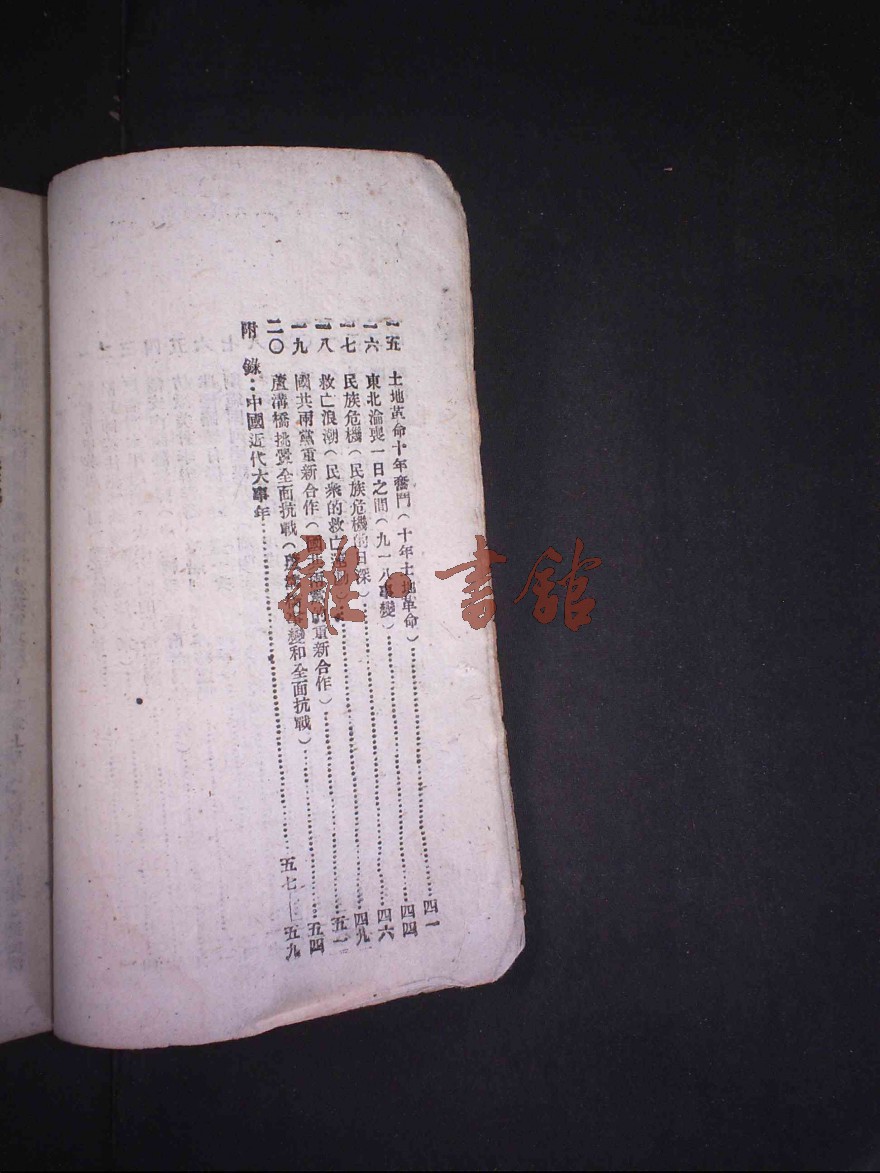 一五　土地革命十年奮鬥（十年土地革命）……四一
一六　東北淪喪一日之間（九一八事變）……四四
一七　民族危機（民族危機的日深）……四六
一八　救亡浪潮（民衆的救亡運動）……四九
一九　國共兩黨重新合作（國共兩黨的重新合作）……五一
二〇　蘆溝橋挑釁全面抗戰（蘆溝橋事變和全面抗戰）……五四
附　錄：中國近代大事年……五七—五九
雜·書館